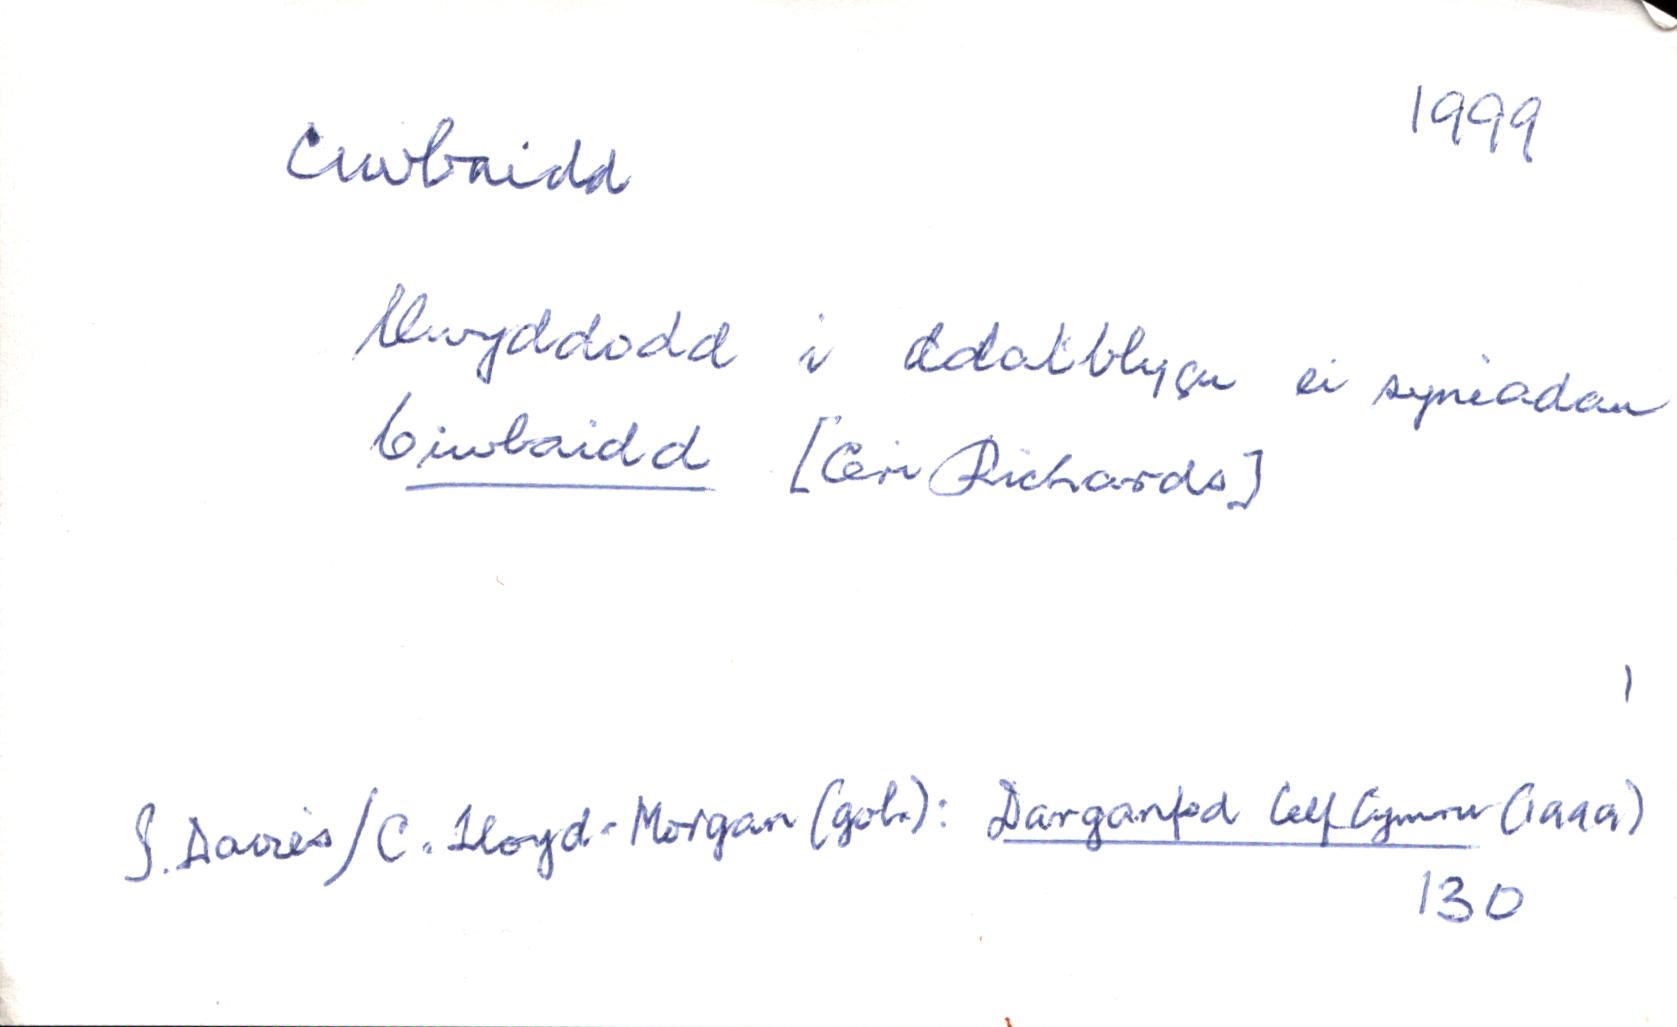 Ciwbaidd
1999
Llwyddodd i ddatblygu ei syniadau
Ciwbaidd [Ceri Richards]
I. Davies/C. Lloyd-Morgan (gol.): Darganfod Celf Cymru (1999)
130